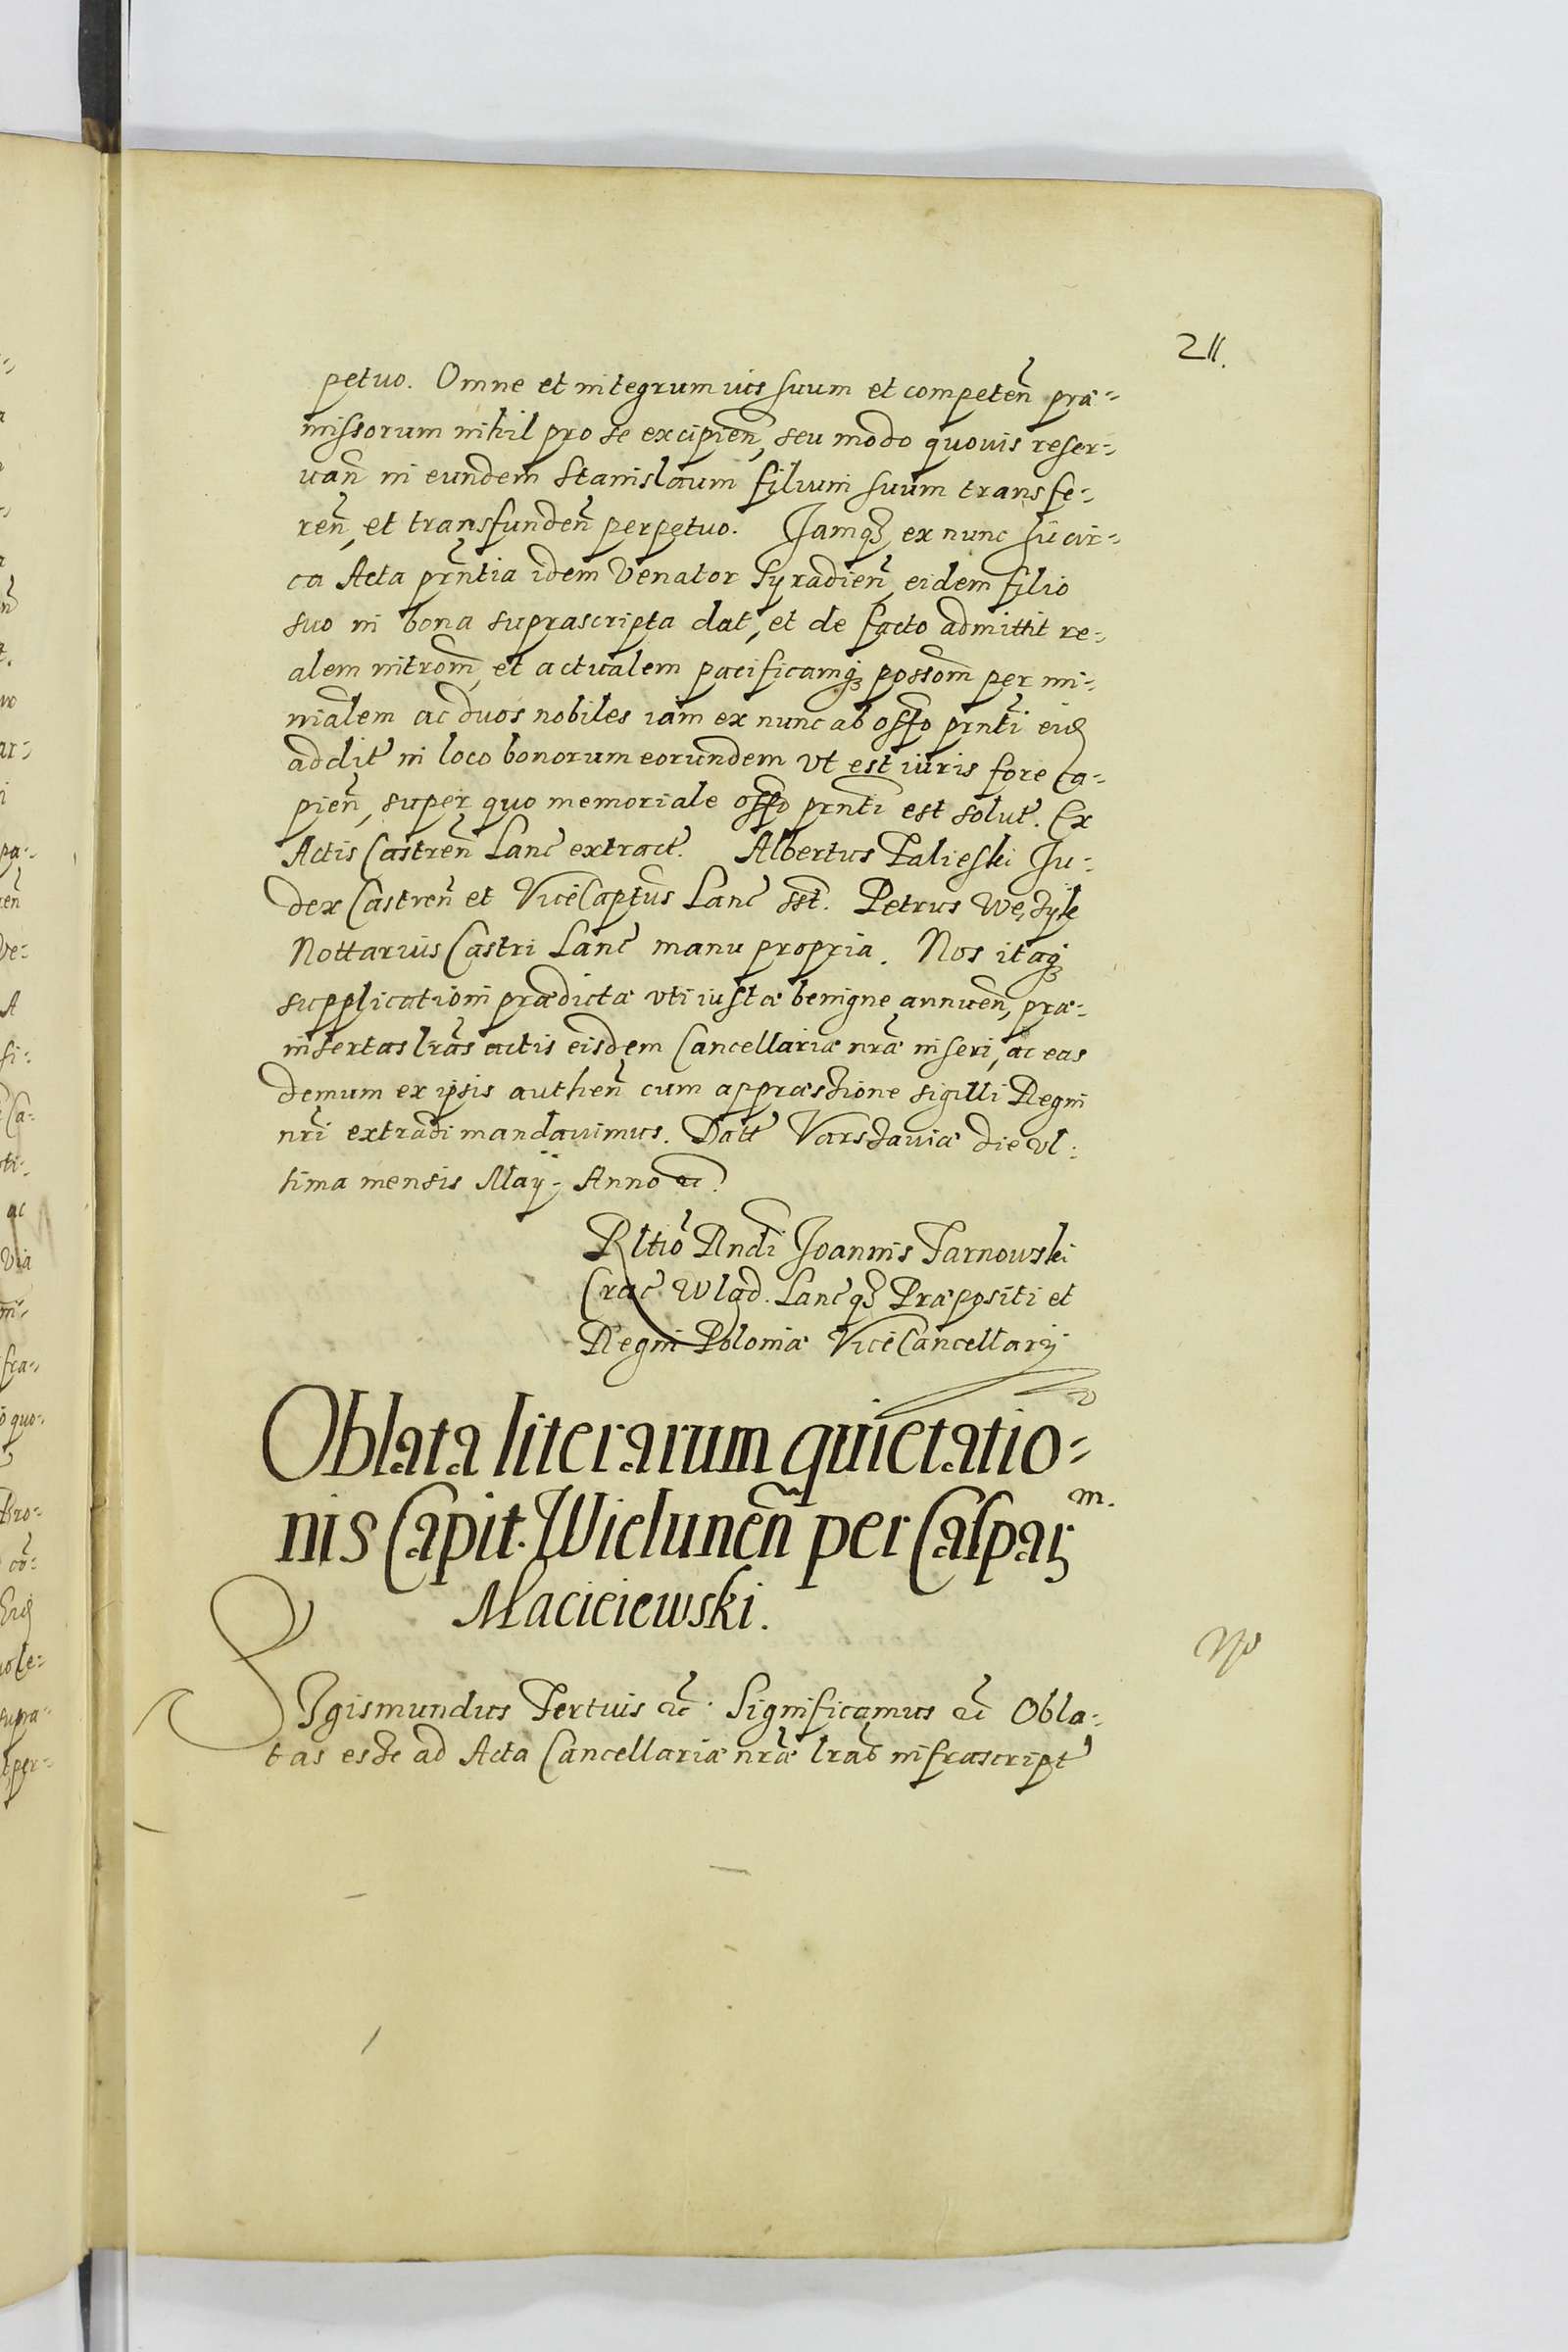 211.
petuo. Omne et integrum ius suum et competen̄ præ=
missorum nihil pro se excipien̄, seu modo quouis reser=
uan̄ in eundem Stanislaum filium suum transfe=
ren̄, et transfunden̄ perpetuo. Jamq₃ ex nunc hūcir=
ca Acta prn̄tia idem Venator Syradien̄, eidem filio
suo in bona suprascripta dat, et de facto admittit re=
alem introm̄, et actualem pacificamq₃ possom̄ per mi=
nialem ac duos nobiles iam ex nunc ab offo prnt̄i eid
addit̄ in loco bonorum eorundem vt est iuris fore ca=
pien̄, super quo memoriale offo prnt̄i est solut̄. Ex
Actis Castren̄ Lanc̄ extract̄. Albertus Palieski Ju=
dex Castren̄ et ViceCapt̄us Lanc̄ sst̄. Petrus
Nottarius Castri Lanc̄ manu propria. Nos itaq₃
supplicationi prædictæ vti iustæ benigne annuen̄, præ=
insertas lrās actis eisdem Cancellariæ nrǣ inseri, ac eas
demum ex ipsis authen̄ cum appræssione sigilli Regni
nrī extradi mandauimus. Datt̄ Varssauiæ die vl=
tima mensis Maij. Anno &c̄.
Rltiō Rndī Joannis Tarnowski
Crac̄ Wlad. Lanc̄ q₃ Præpositi et
Regni Poloniæ ViceCancellarij
Oblata literarum quietatio=
nis Capit. Wielunen̄ per Caspar m.
Macieiewski.
Sigismundus Tertius &c̄. Significamus &c̄ Obla=
tas esse ad Acta Cancellariæ nrǣ lrās infrascript̄